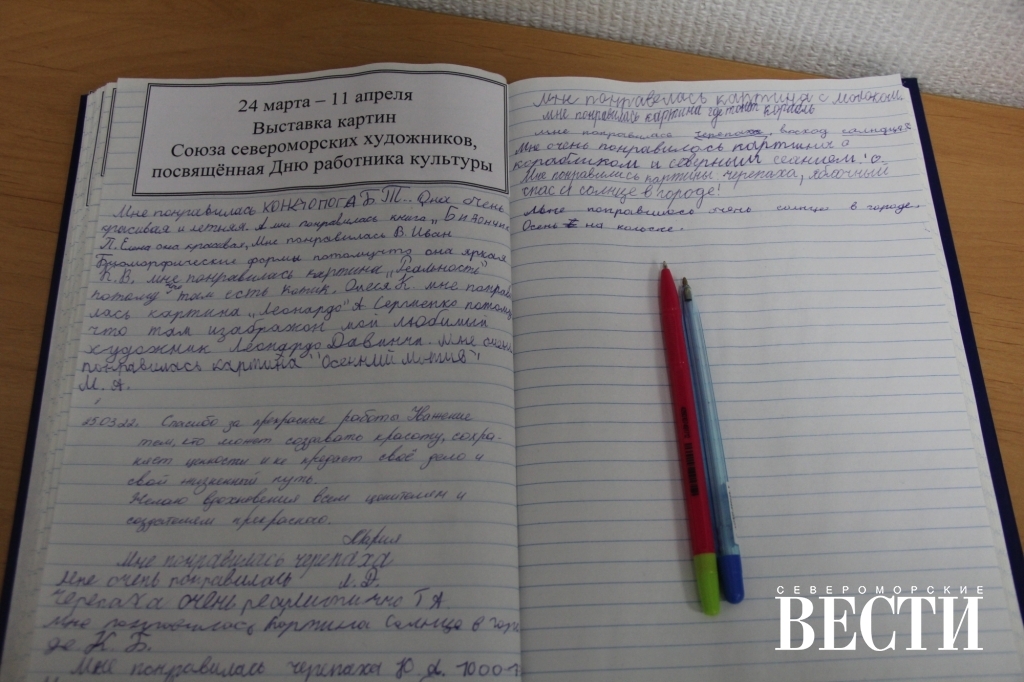 24 марта – 11 апреля
Выставка картин
Союза североморских художников,
посвящённая Дню работника культуры
Мне понравилась Б.Т.. Она очень
красивая и летняя. А мне понравилась книга,,
она красивая, Мне понравилась В. Иван
Биоморфические формы потомушто она яркая
К.В. мне понравилась картина ,,Реальность"
потому что там есть котик. Олеся К. мне понрави
лась картина ,,Леонардо" А потому
что там изображон мой любимий
художник Леонардо Давинчи. Мне
понравилась картина "Осенний мотив"
М. А.
25.03.22. Спасибо за прекрасные работы
тем, кто может создавать красоту, сохра-
няет ценности и не предаёт своё дело и
свой жизненный путь.
Желаю вдохновения всем ценителям и
создателям прекрасного.
Мария
Мне понравилась черепаха
Мне очень понравилась Л. Д.
Черепаха очень реалистично Т А.
Мне понравилась картина Солнце в горо
де. К. Б.
Мне понравилась черепаха Ю. А. 1000-7
Мне понравелась картина с
мне понравилась картина где тонет корабль
мне понравилась черепаха,
Мне очень понравилось картина с
корабликом и северным сеянием!
Мне понравились картины черепаха,
спас и солнце в городе!
Мне понравилось очень солнце в городе.
Осень на
СЕВЕРОМОРСКИЕ
ВЕСТИ